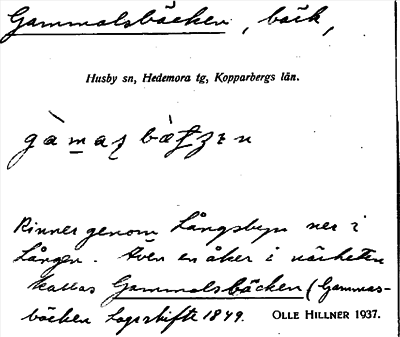 Gammalsbäcken, bäck,
Husby sn, Hedemora tg, Kopparbergs län.
Rinner genom Långsbyn ner i
Lången. Även en åker i närheten
kallas Gammalsbäcken (Gammas-
bäcken Lagaskifte 1849. OLLE HILLNER 1937.